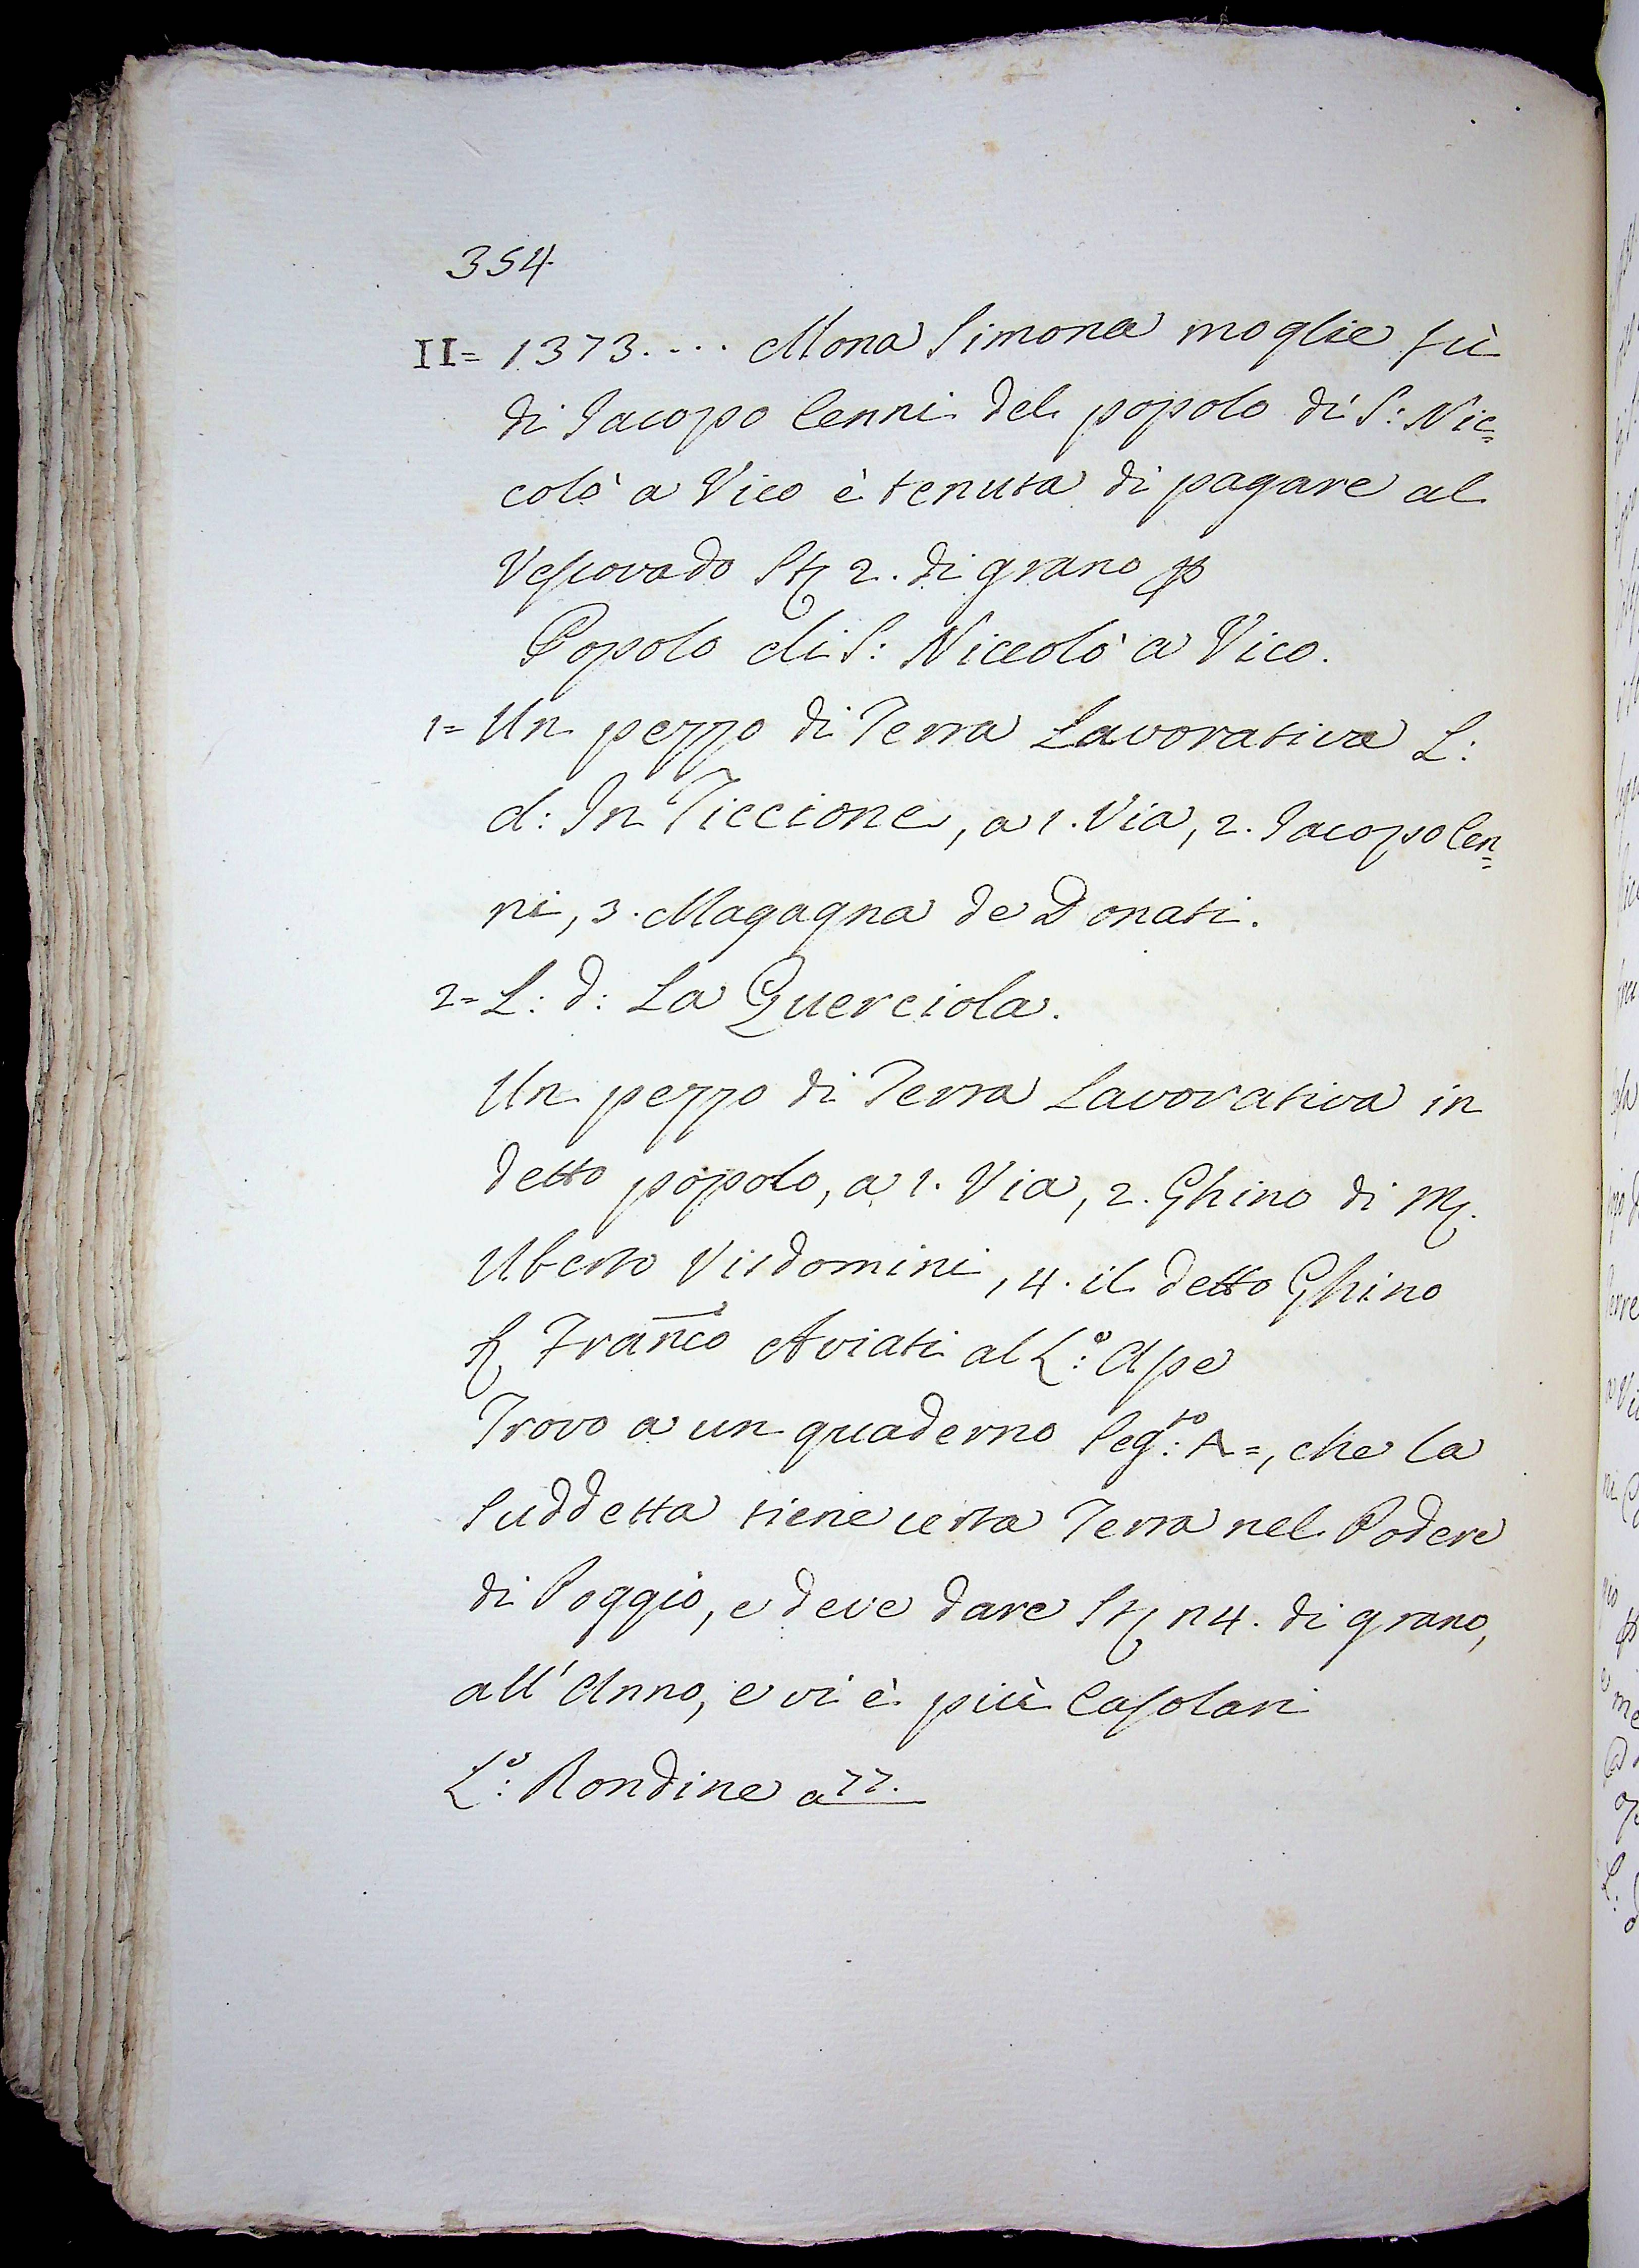 354.
II= 1373.... Mona Simona moglie fù
di Jacopo Cenni del popolo di S: Nic=
colò a Vico è tenuta di pagare al
Vescovado St 2. di grano p
Popolo di S: Niccolò a Vico.
1= Un pezzo di Terra Lavorativa L:
d: In Ticcione, a 1. Via, 2. Jacopo Cen=
ni, 3. Magagna de Donati.
2= L: d: La Querciola.
Un pezzo di Terra Lavorativa in
detto popolo, a 1. Via, 2. Ghino di M.
Uberto Visdomini, 4. il detto Ghino
Franco Aviati al L.º: Ape
Trovo a un quaderno Seg.to: A=, che la
Suddetta tiene certa Terra nel Podere
di Poggio, e deve dare St n 4. di grano,
all'Anno, e vi è più Casolari
L.º: Rondine a 77.